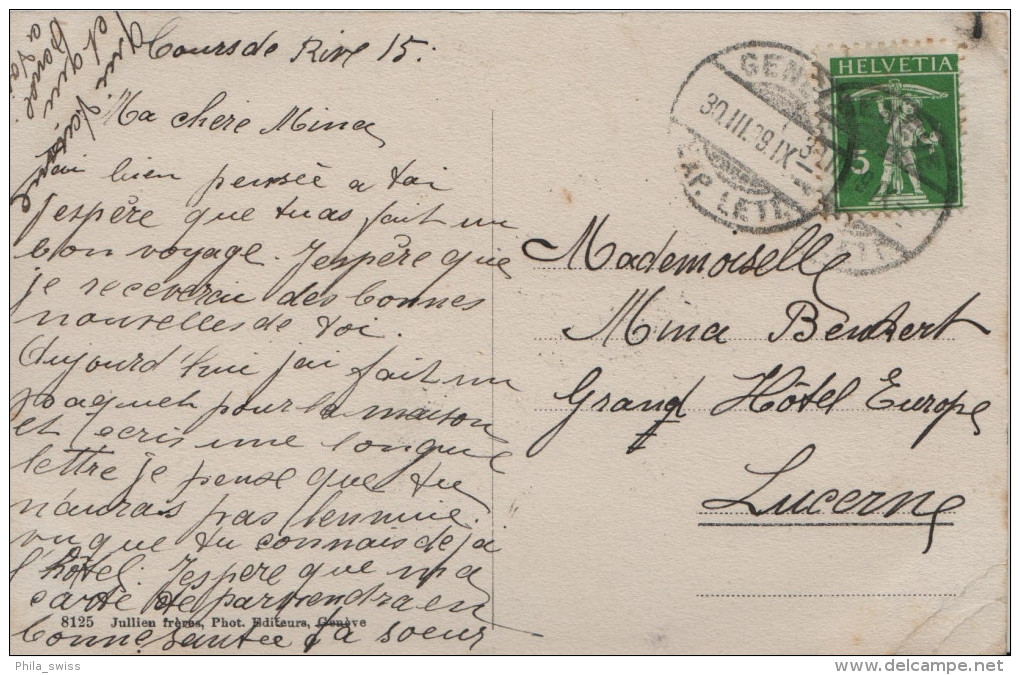 Cours de Rive 15.
Ma chère Mina
J'ai bien pensée a toi
j'espère que tu as fait un
bon voyage. J'espère que
je receverai des bonnes
nouvelles de toi.
Aujourd'hui j'ai fait un
paquet pour la maison
et écris une longue
lettre je pense que tu
n'aurais pas l'ennuie
vu que tu connais déjà
l'hôtel. J'espère que ma
carte te parviendra en
bonne santée ta soeur
qui
et qui
pense
a toi
8125 Jullien frères, Phot. Editeurs, Genève
HELVETIA
5
GENÈVE
30.III.09.IX
EXP. LETT.
Mademoiselle
Mina
Grand Hôtel Europe
Lucerne
Phila_swiss
delcampe.net